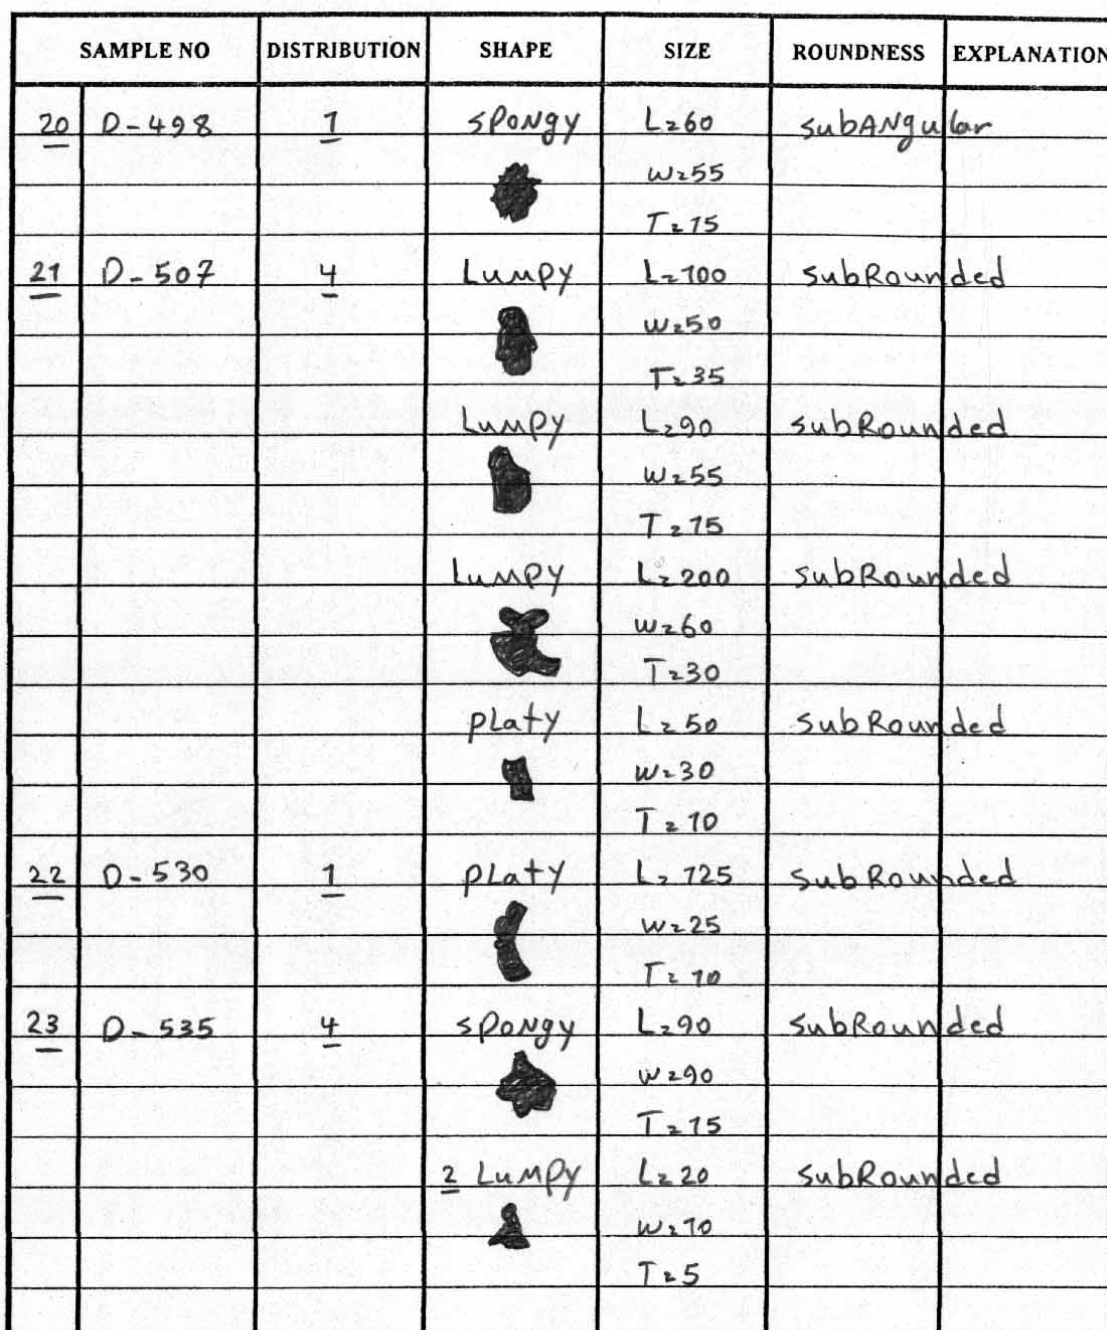 SAMPLE NO DISTRIBUTION SHAPE SIZE ROUNDNESS EXPLANATION
20 D-498 1 spongy L=60 subAngular
W=55
T=15
21 D-507 4 Lumpy L=100 subRounded
W=50
T=35
Lumpy L=90 subRounded
W=55
T=15
Lumpy L=200 subRounded
W=60
T=30
platy L=50 subRounded
W=30
T=10
22 D-530 1 platy L=125 subRounded
W=25
T=10
23 D-535 4 spongy L=90 subRounded
W=90
T=15
2 Lumpy L=20 subRounded
W=10
T=5